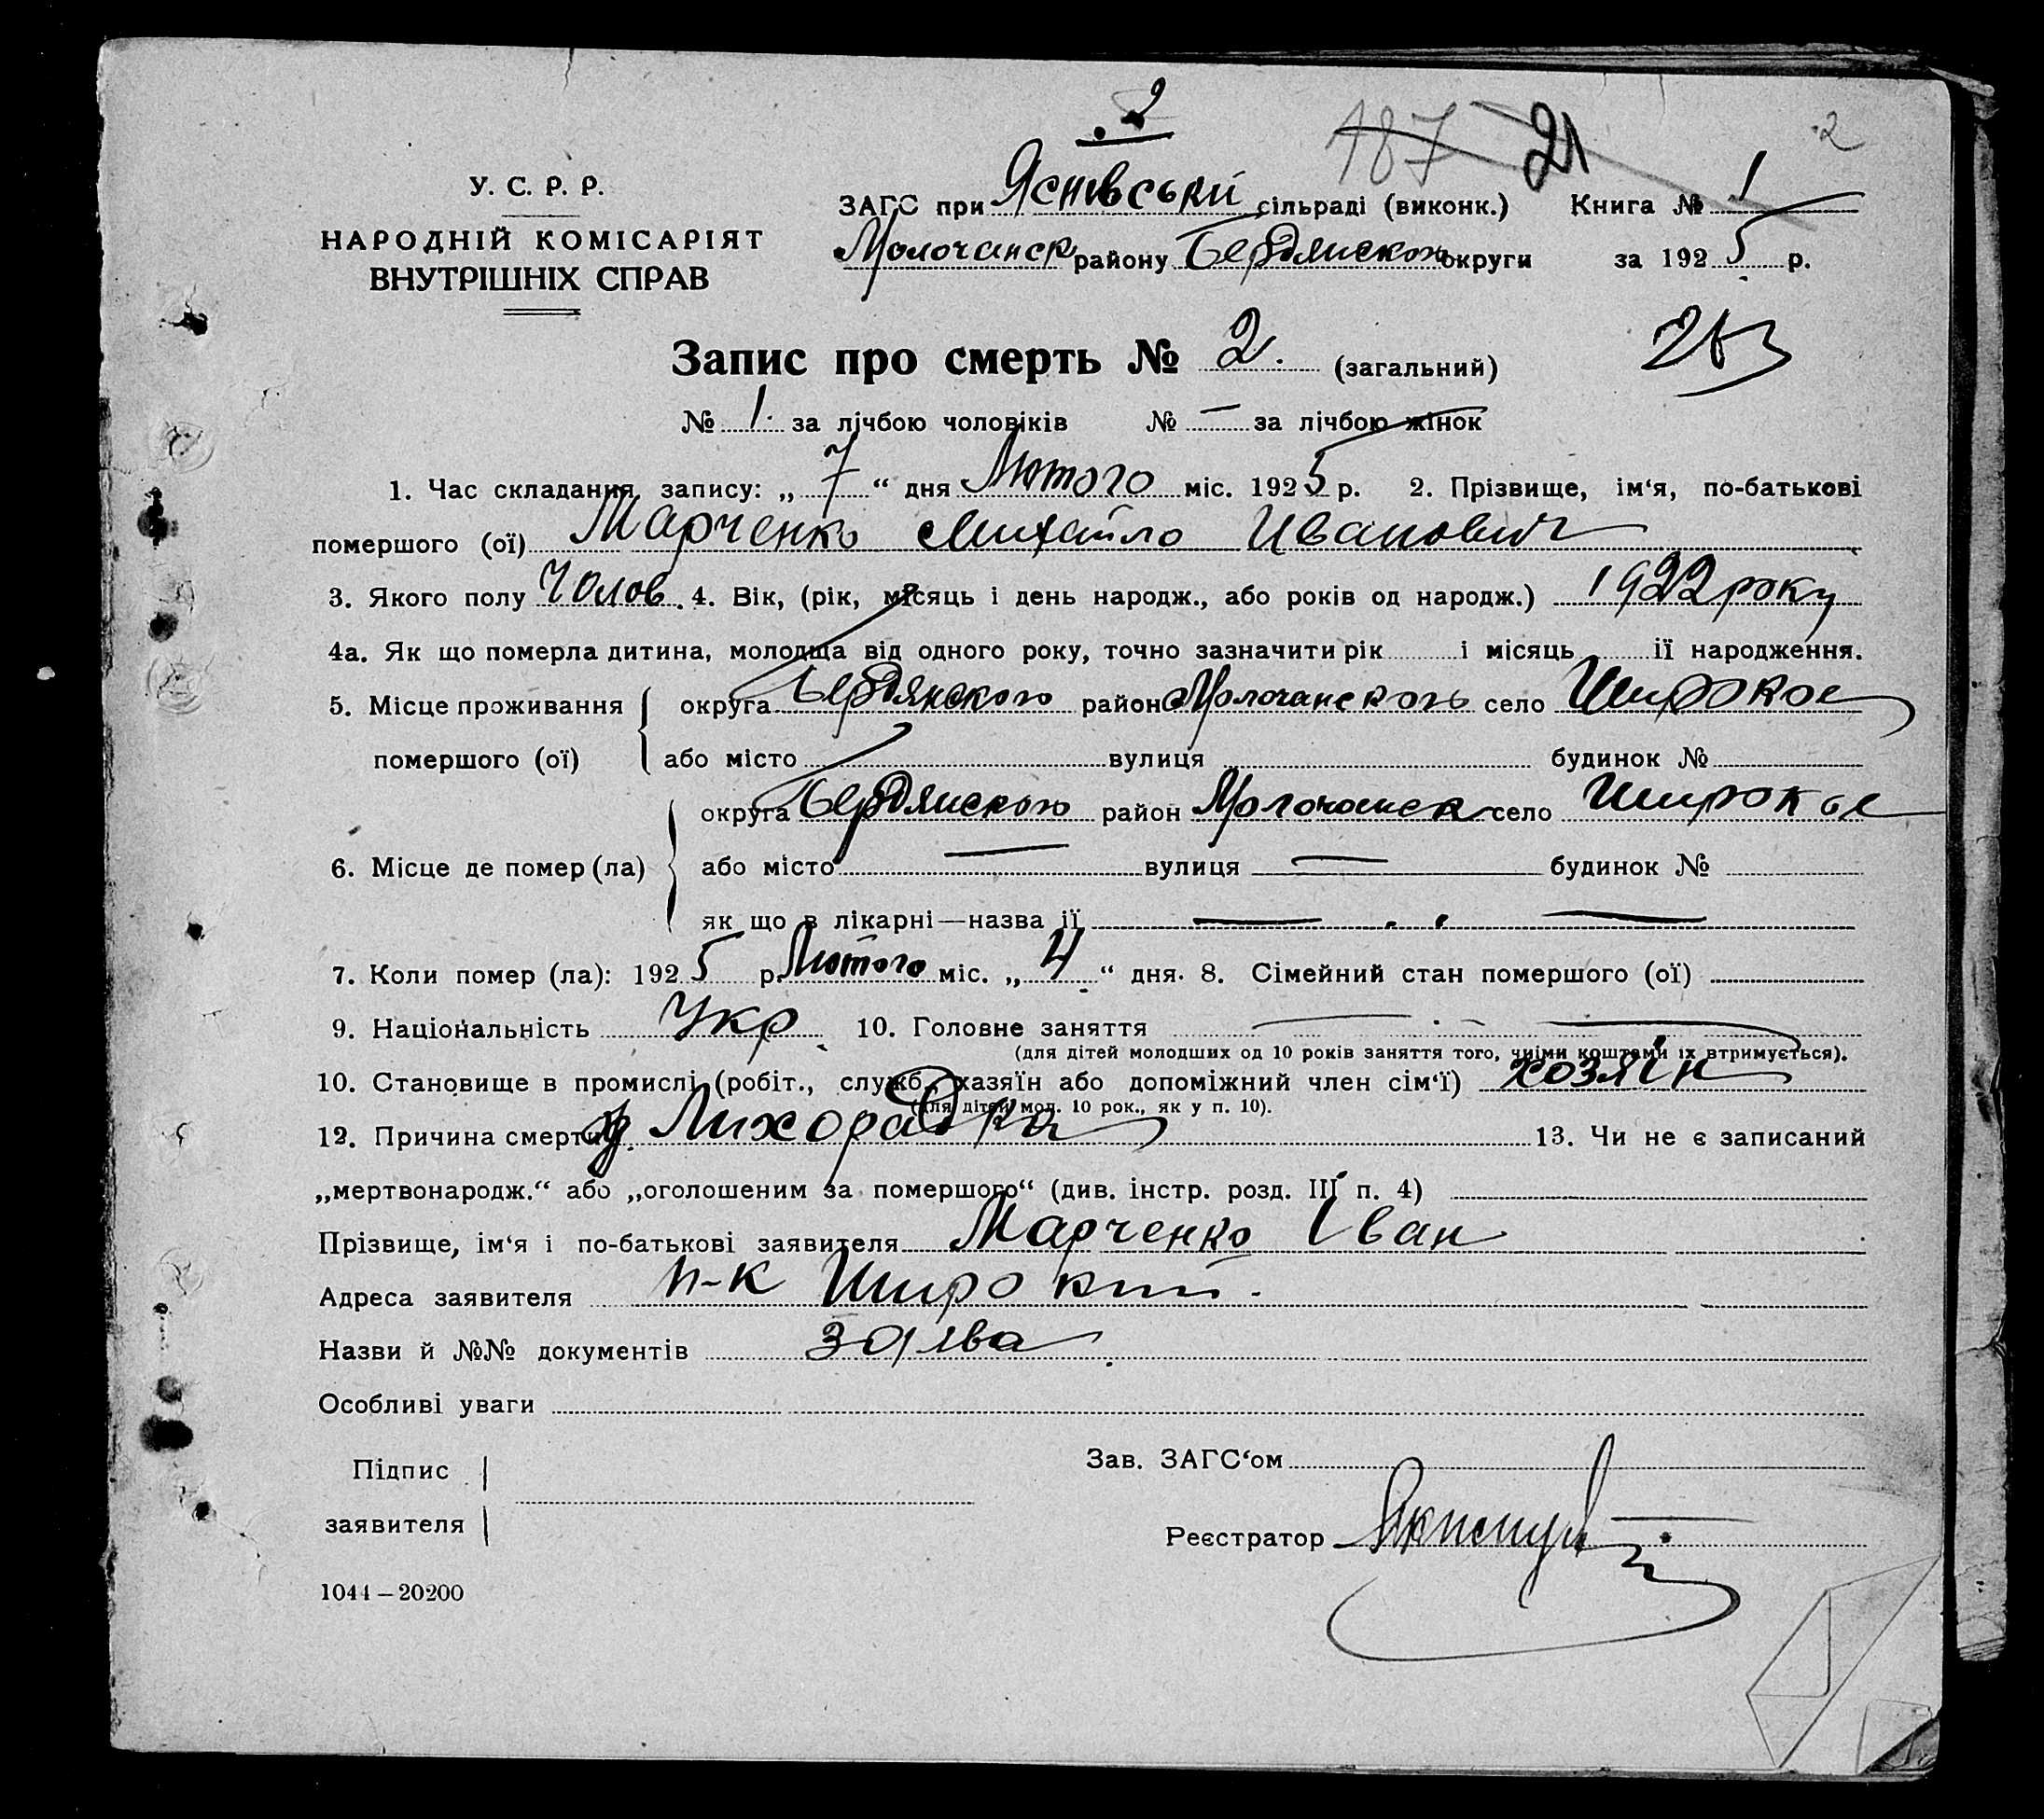 2
187 21 2
У. С. Р. Р.
НАРОДНІЙ КОМІСАРІЯТ
ВНУТРІШНІХ СПРАВ
ЗАГС при Яснівський сільраді (виконк.) Книга № 1
Молочанск району Бердянскою округи за 1925 р.
Запис про смерть № 2. (загальний)
№ 1. за лічбою чоловіків № — за лічбою жінок
1. Час складання запису: „ 7 “ дня Лютого міс. 1925 р. 2. Прізвище, ім‘я, по-батькові
помершого (ої) Марченко Михайло Иванович
3. Якого полу Чолов. 4. Вік, (рік, місяць і день народж., або років од народж.) 1922 року
4а. Як що померла дитина, молодща від одного року, точно зазначити рік і місяць її народження.
5. Місце проживання округа Бердянского район Молочанского село Широкое
помершого (ої) або місто вулиця будинок №
округа Бердянского район Молочанск село Широкое
6. Місце де помер (ла) або місто — вулиця — будинок №
як що в лікарні—назва її — „ —
7. Коли помер (ла): 1925 р. Лютого міс. „ 4 “ дня. 8. Сімейний стан помершого (ої)
9. Національність Укр. 10. Головне заняття —
(для дітей молодших од 10 років заняття того, чиїми коштами їх втримується).
10. Становище в промислі (робіт., служб., хазяїн або допоміжний член сім‘ї) хозяїн
(для дітей мол. 10 рок., як у п. 10).
12. Причина смерти Лихорадка 13. Чи не є записаний
„мертвонародж.“ або „оголошеним за помершого“ (див. інстр. розд. III п. 4)
Прізвище, ім‘я і по-батькові заявителя Марченко Іван
Адреса заявителя п-к Широкий.
Назви й №№ документів заява
Особливі уваги
Підпис
заявителя
Зав. ЗАГС‘ом
Реєстратор
1044—20200